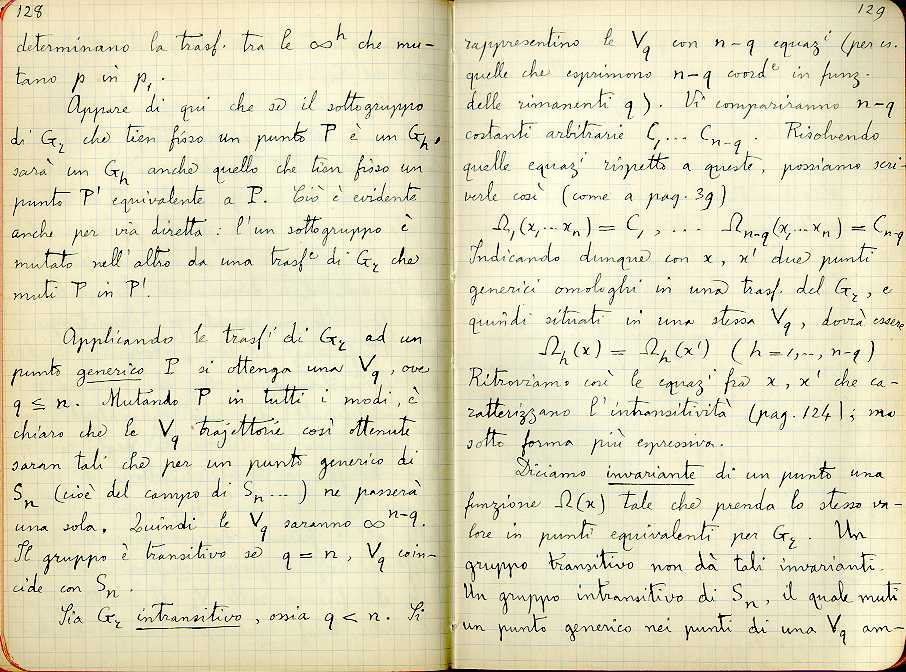 128
determinano la trasf. tra le ∞^h che mu-
tano p in p₁.
Appare di qui che se il sottogruppo
di G_r che tien fisso un punto P è un G_h,
sarà un G_h anche quello che tien fisso un
punto P' equivalente a P. Ciò è evidente
anche per via diretta: l'un sottogruppo è
mutato nell'altro da una trasf^e di G_r che
muti P in P'.
Applicando le trasf^i di G_r ad un
punto generico P si ottenga una V_q, ove
q ≤ n. Mutando P in tutti i modi, è
chiaro che le V_q trajettorie così ottenute
saran tali che per un punto generico di
S_n (cioè del campo di S_n ...) ne passerà
una sola. Quindi le V_q saranno ∞^{n-q}.
Il gruppo è transitivo se q = n, V_q coin-
cide con S_n.
Sia G_r intransitivo, ossia q < n. Si
129
rappresentino le V_q con n-q equaz^i (per es.
quelle che esprimono n-q coord^e in funz.
delle rimanenti q). Vi compariranno n-q
costanti arbitrarie C₁ ... C_{n-q}. Risolvendo
quelle equaz^i rispetto a queste, possiamo scri-
verle così (come a pag. 39)
Ω₁(x₁...x_n) = C₁, ... Ω_{n-q}(x₁...x_n) = C_{n-q}
Indicando dunque con x, x' due punti
generici omologhi in una trasf. del G_r, e
quindi situati in una stessa V_q, dovrà essere
Ω_h(x) = Ω_h(x') (h=1,.., n-q)
Ritroviamo così le equaz^i fra x, x' che ca-
ratterizzano l'intransitività (pag. 124); ma
sotto forma più espressiva.
Diciamo invariante di un punto una
funzione Ω(x) tale che prenda lo stesso va-
lore in punti equivalenti per G_r. Un
gruppo transitivo non dà tali invarianti.
Un gruppo intransitivo di S_n, il quale muti
un punto generico nei punti di una V_q am-